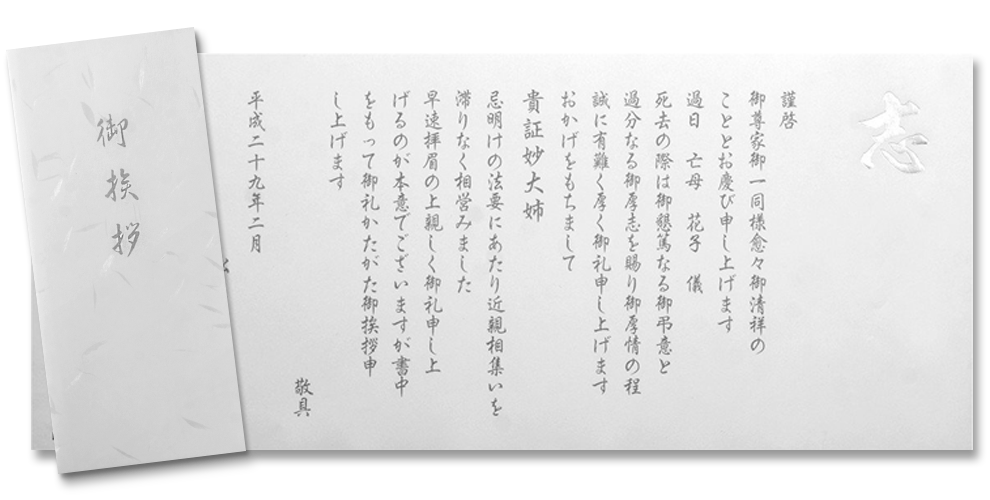 志
謹啓
御尊家御一同様愈々御清祥の
こととお慶び申し上げます
過日　亡母　花子　儀
死去の際は御懇篤なる御弔意と
過分なる御厚志を賜り御厚情の程
誠に有難く厚く御礼申し上げます
おかげをもちまして
貴証妙大姉
忌明けの法要にあたり近親相集いを
滞りなく相営みました
早速拝眉の上親しく御礼申し上
げるのが本意でございますが書中
をもって御礼かたがた御挨拶申
し上げます
敬具
平成二十九年二月
御挨拶